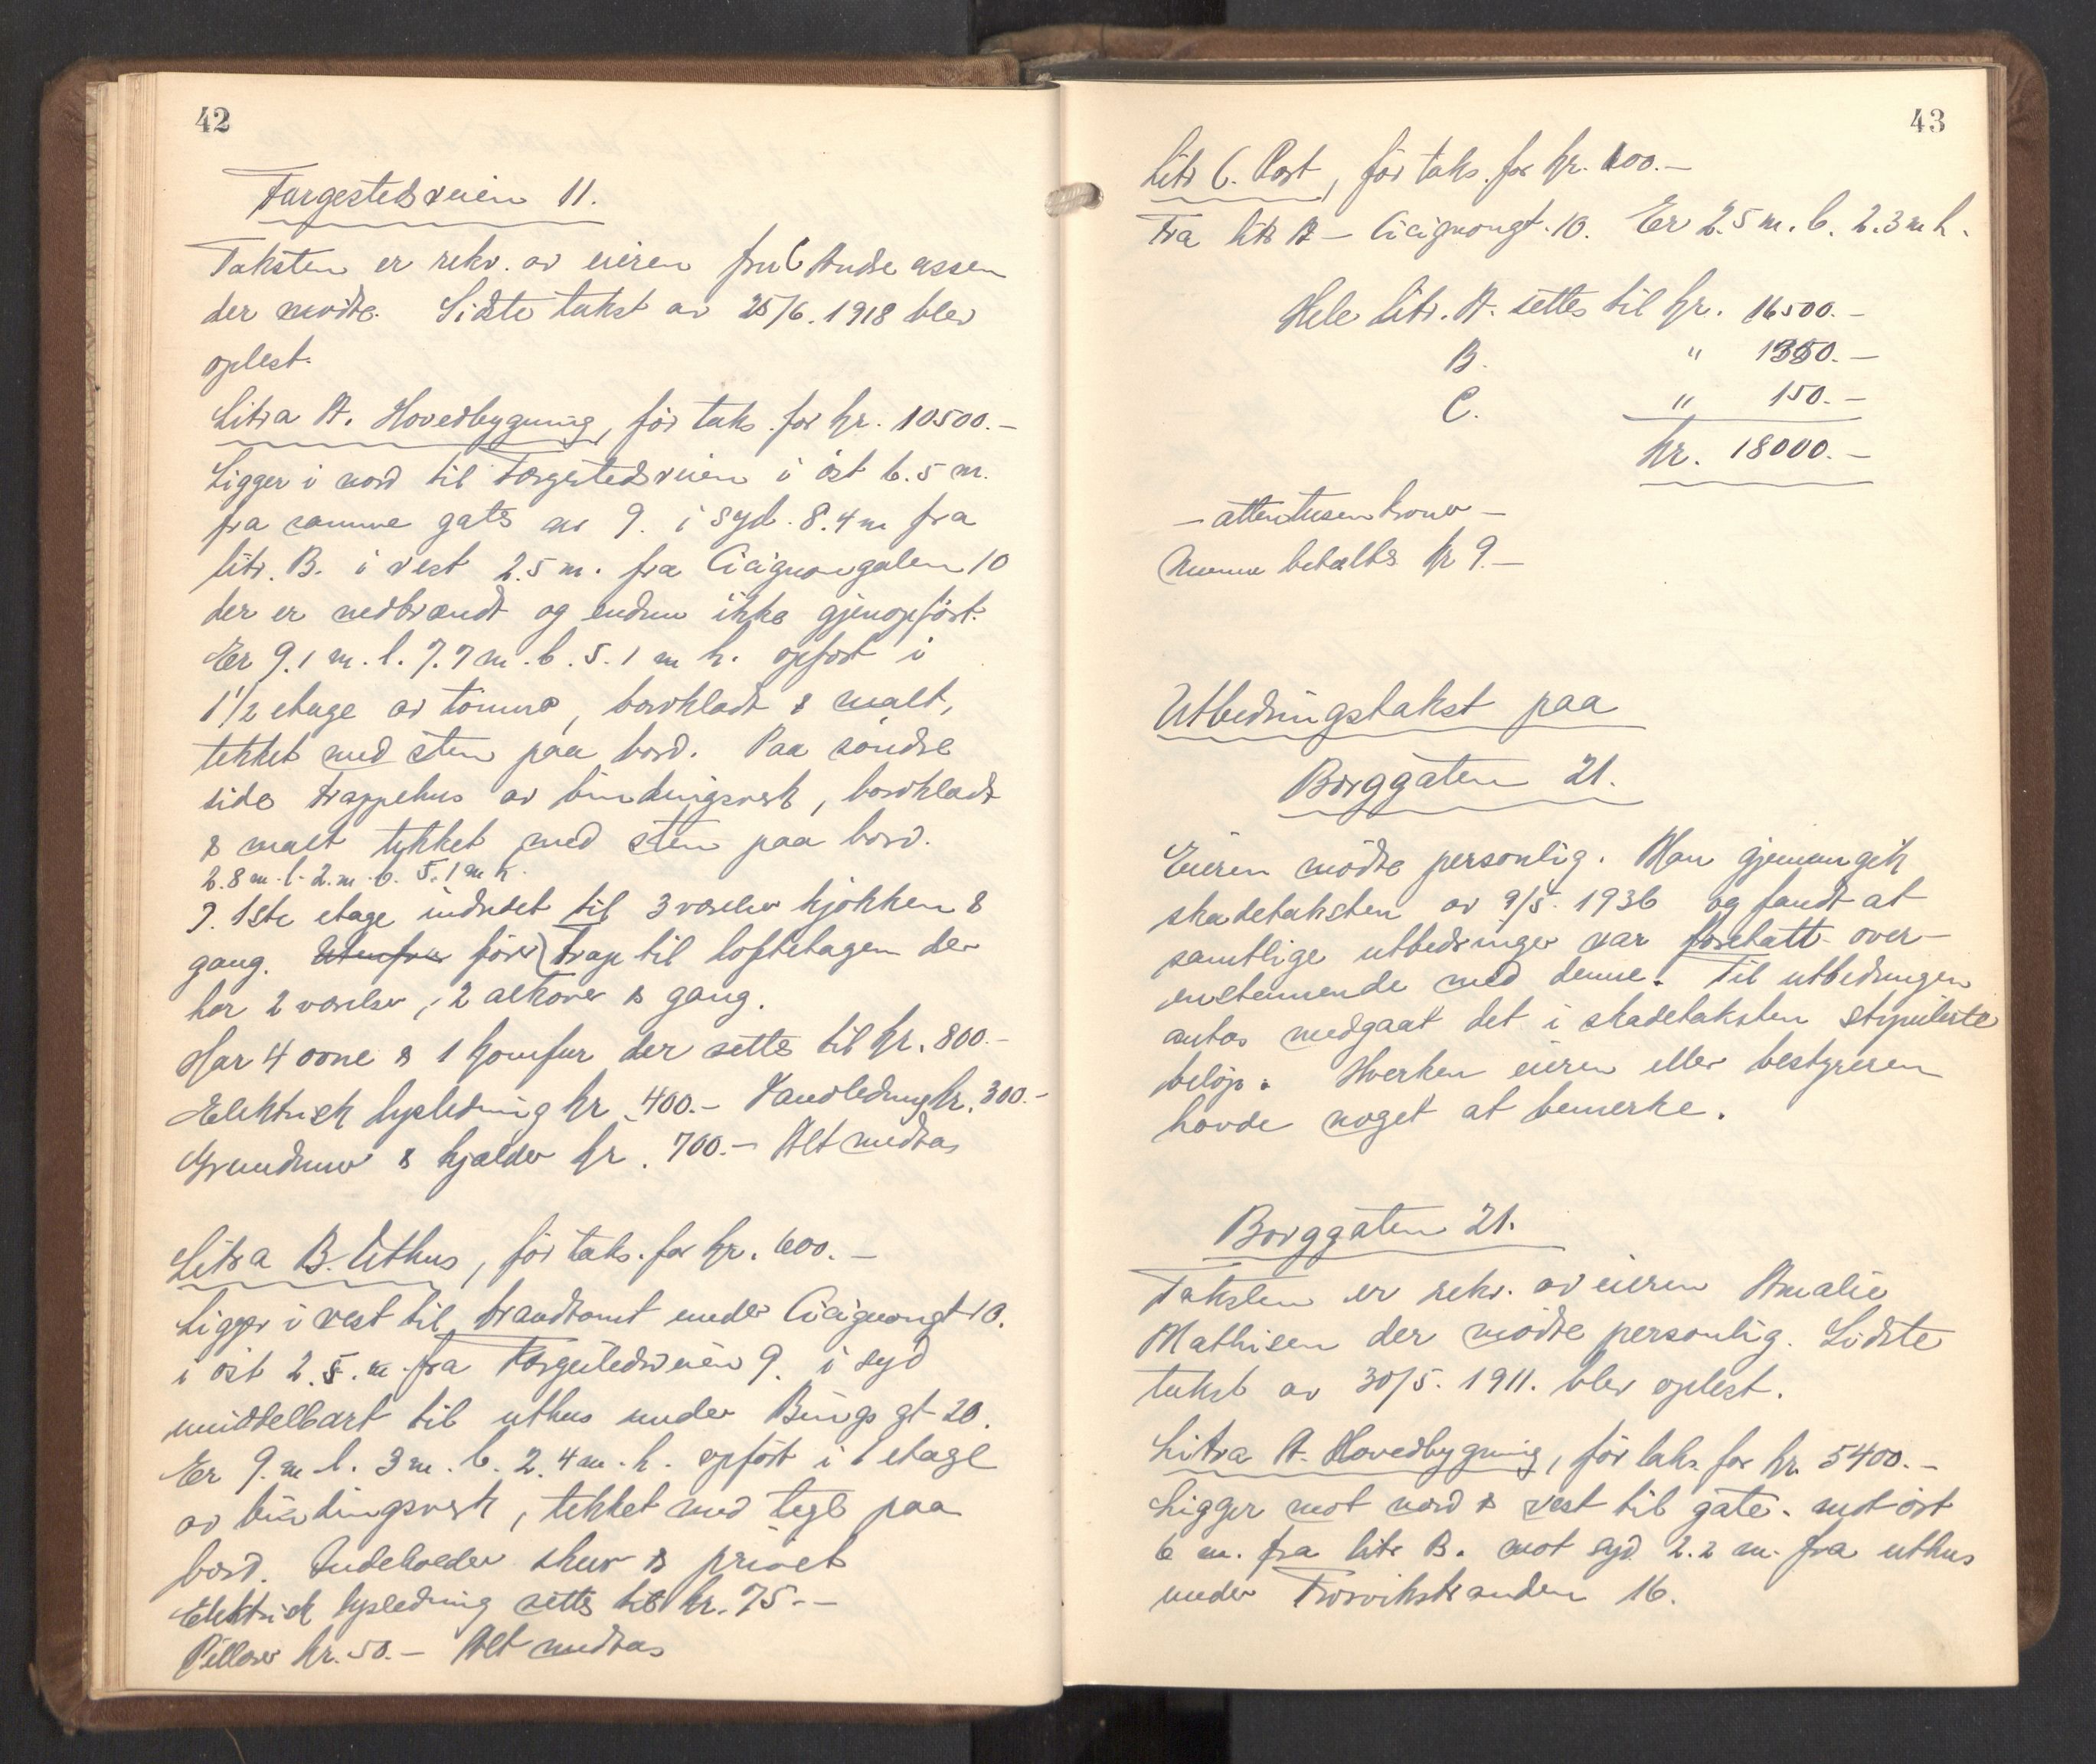 42
Færgestedsveien 11.
Taksten er rekv. av eieren fru C Andreassen
der mødte. Sidste takst av 25/6. 1918 blev
oplest.
Litra A. Hovedbygning, før taks. for kr. 10500.-
Ligger i nord til Færgestedsveien i øst 6.5 m.
fra samme gate nr 9. i syd. 8.4 m fra
litr. B. i vest 2.5 m. fra Cicignongaten 10
der er nedbrændt og endnu ikke gjenopført.
Er 9.1 m. l. 7.7 m. b. 5.1 m h. opført i
1 1/2 etage av tømmer, bordklædt & malt,
tekket med sten paa bord. Paa søndre
side trappehus av bindingsverk, bordklædt
& malt tekket med sten paa bord.
2.8 m. l. 2. m. b. 5.1 m h.
I. 1ste etage indredet til 3 værelser kjøkken &
gang. Utenfra fører trap til loftetagen der
har 2 værelser, 2 alkover & gang.
Har 4 ovne & 1 komfur der settes til kr. 800.-
Elektrisk lysledning kr. 400.- Vandledning kr. 300.-
Grundmur & kjælder kr. 700.- Alt medtas
Litra B. Uthus, før taks. for kr. 600.-
Ligger i vest til brandtomt under Cicignongt 10.
i øst 2.5. m. fra Færgestedsveien 9. i syd
umiddelbart til uthus under Bings gt 20.
Er 9. m l. 3 m. b. 2.4 m. h. opført i 1 etage
av bindingsverk, tekket med tegl paa
bord. Indeholder skur & privet
Elektrisk lysledning settes til kr. 75.-
Pillarer kr. 50.- Alt medtas
43
Litr C. Port, før taks. for kr. 100.-
Fra litr A - Cicignongt. 10. Er 2.5 m. b. 2.3 m h.
Hele litr. A. settes til kr. 16500.-
B. " 1350.-
C. " 150.-
kr. 18000.-
- attentusen kroner -
Numer betaltes kr 9.-
Utbedringstakst paa
Borggaten 21.
Eieren mødte personlig. Man gjennemgik
skadetaksten av 9/5. 1936 og fandt at
samtlige utbedringer var foretatt over-
enstemmende med denne. Til utbedringen
antas medgaat det i skadetaksten stipulerte
beløp. Hverken eieren eller bestyreren
havde noget at bemerke.
Borggaten 21.
Taksten er rekv. av eieren Amalie
Mathisen der mødte personlig. Sidste
takst av 30/5. 1911. blev oplest.
Litra A. Hovedbygning, før taks. for kr. 5400.-
Ligger mot nord & vest til gate. mot øst
6 m. fra litr B. mot syd 2.2 m. fra uthus
under Trosvikstranden 16.